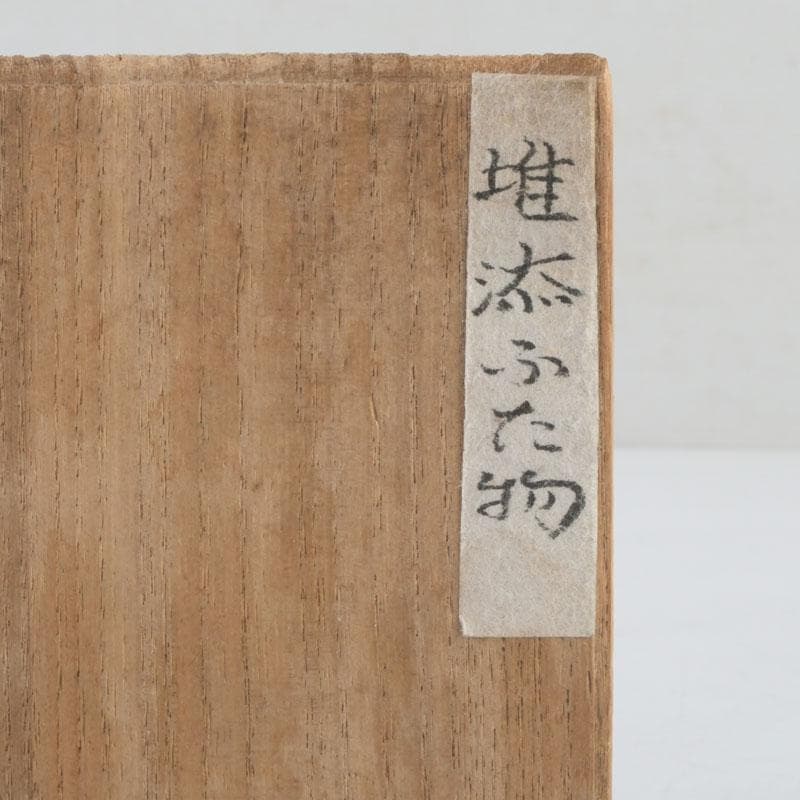 堆添ふた物